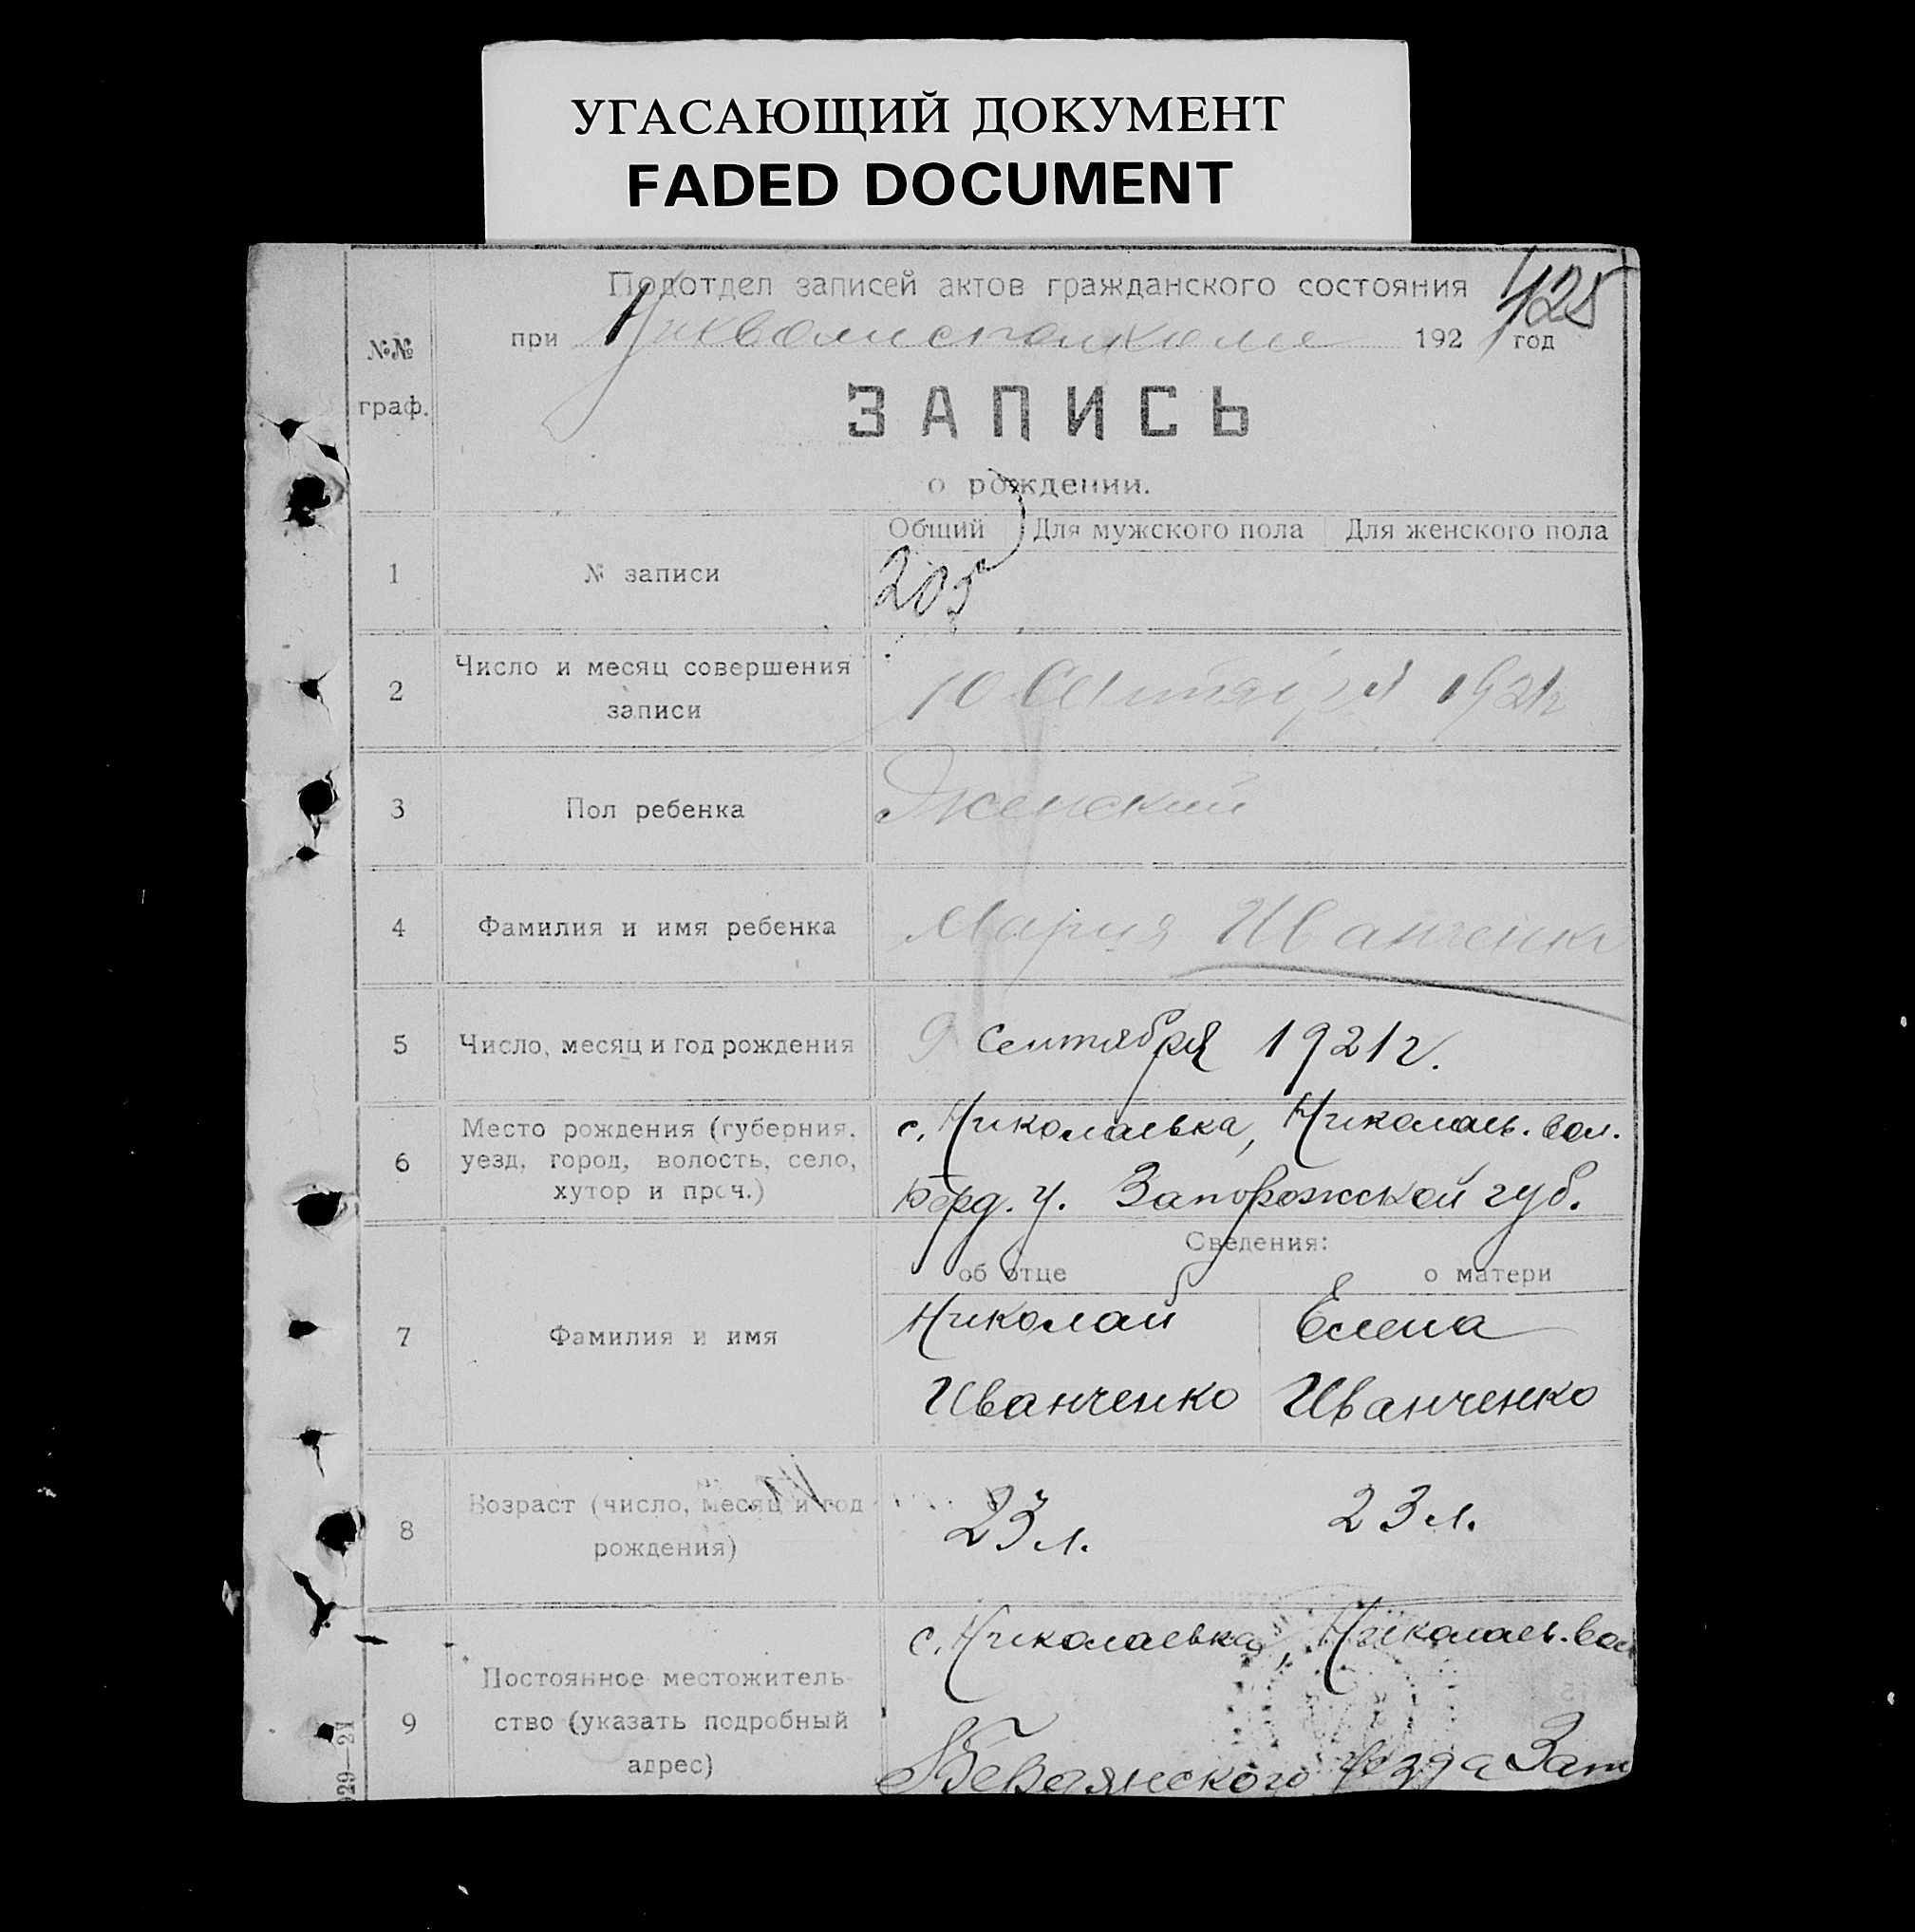 УГАСАЮЩИЙ ДОКУМЕНТ
FADED DOCUMENT
Подотдел записей актов гражданского состояния
425
при Никволисполкоме 1921 год
№№
граф.
ЗАПИСЬ
о рождении.
Общий Для мужского пола Для женского пола
1 № записи 205
2 Число и месяц совершения
записи
10 Сентября 1921г
3 Пол ребенка Женский
4 Фамилия и имя ребенка Мария Иванченко
5 Число, месяц и год рождения 9 Сентября 1921 г.
6 Место рождения (губерния,
уезд, город, волость, село,
хутор и проч.)
с. Николаевка, Николаев. вол.
Берд. у. Запорожской губ.
Сведения:
об отце о матери
7 Фамилия и имя
Николай Елена
Иванченко Иванченко
8 Возраст (число, месяц и год
рождения)
23 л. 23 л.
9 Постоянное местожитель-
ство (указать подробный
адрес)
с. Николаевка, Николаев. вол
Бердянского уезда Зап
029—21